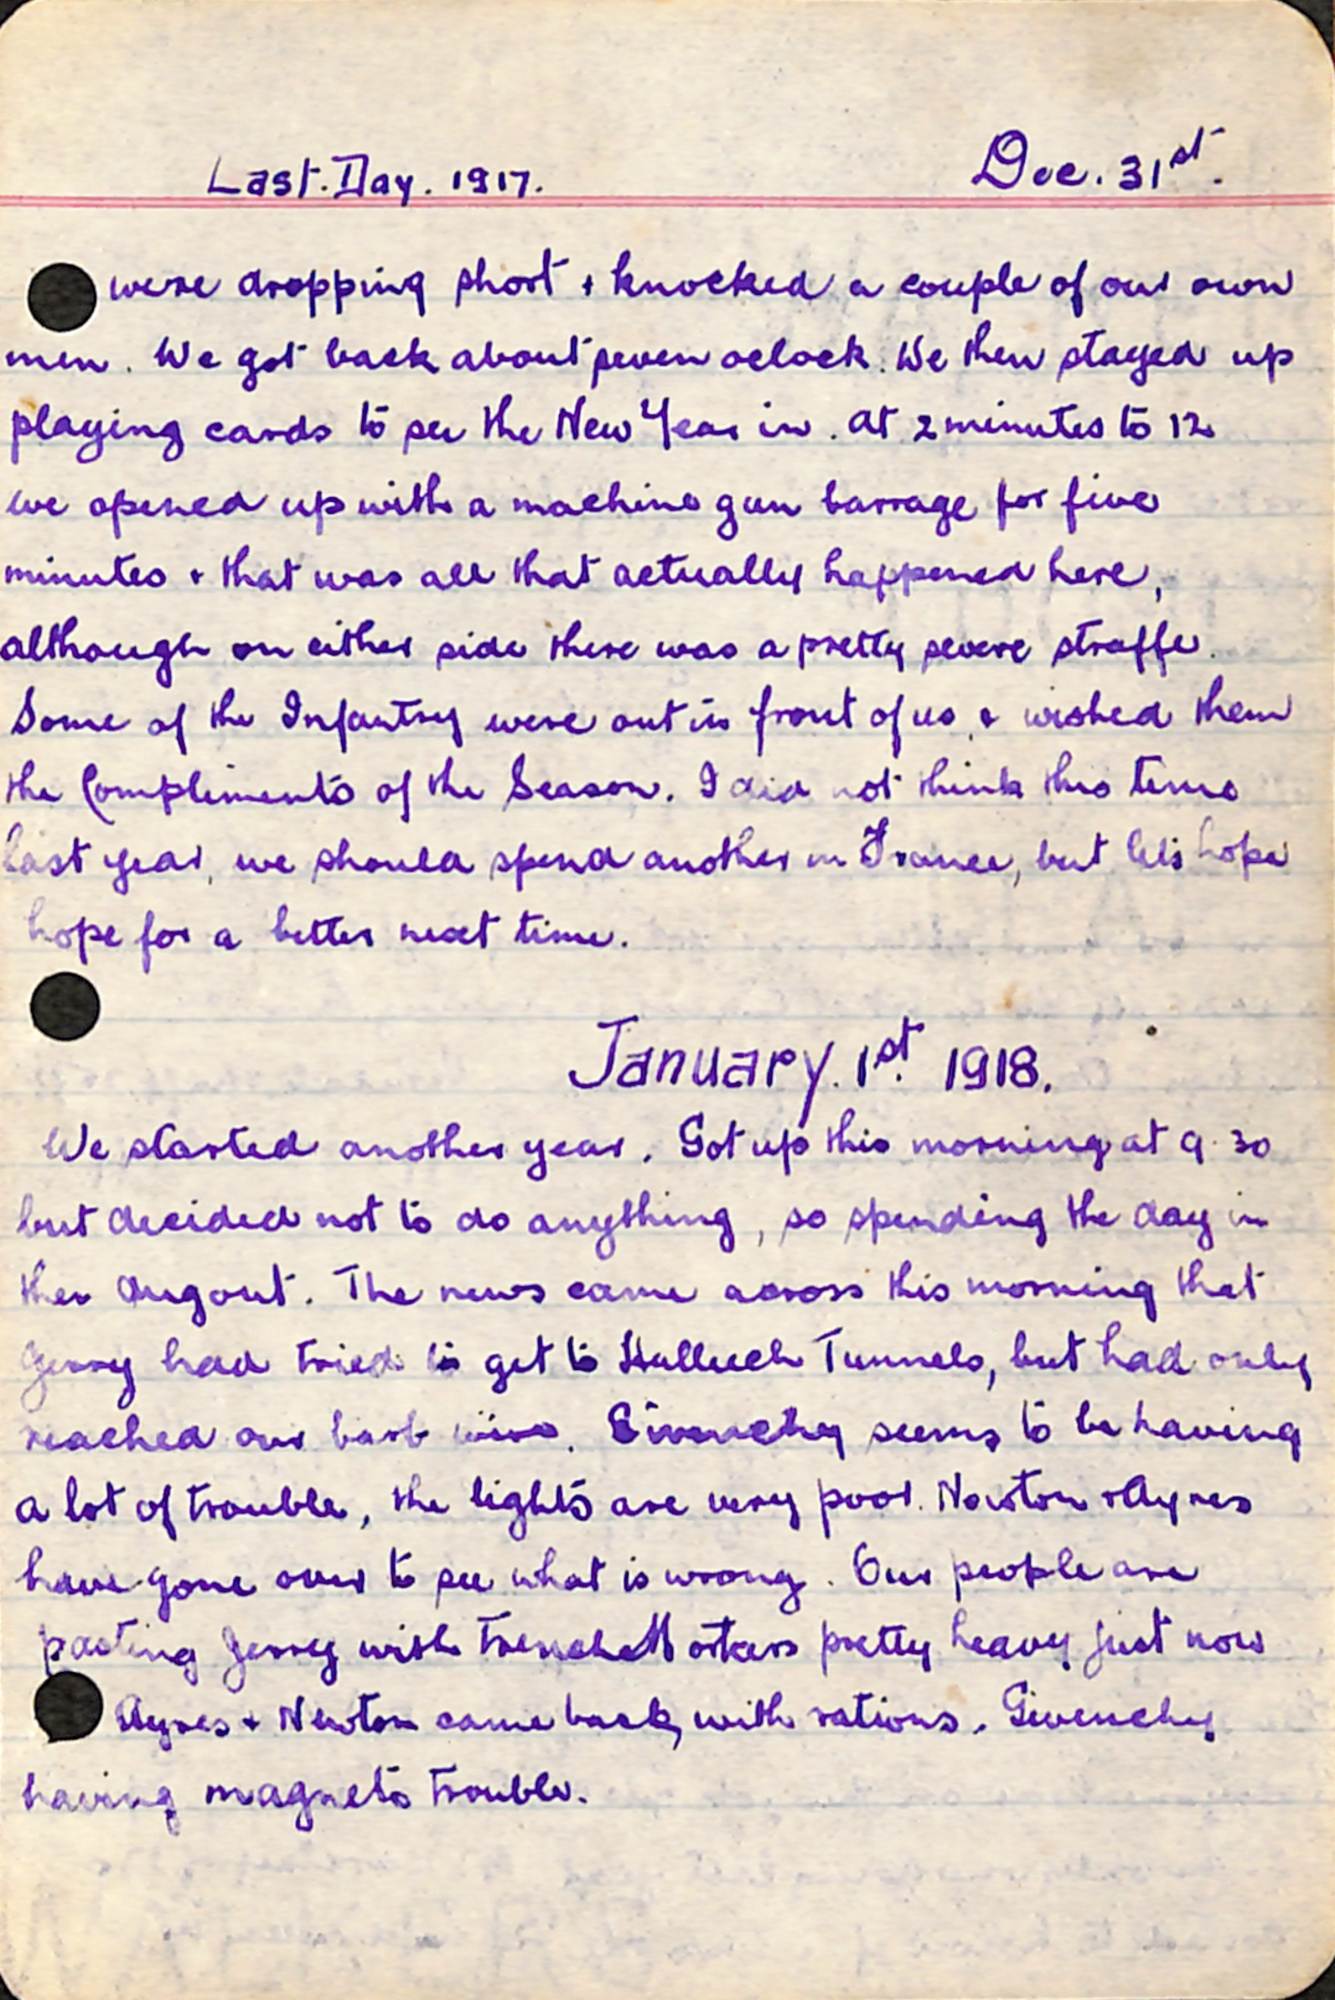 Last. Day. 1917. Dec. 31st.
were dropping short + knocked a couple of our own
men. We got back about seven oclock. We then stayed up
playing cards to see the New Year in. At 2 minutes to 12
we opened up with a machine gun barrage for five
minutes + that was all that actually happened here,
although on either side there was a pretty severe straffe.
Some of the Infantry were out in front of us, + wished them
the Compliments of the Season. I did not think this time
last year, we should spend another in France, but let's hope
hope for a better next time.
January. 1st. 1918.
We started another year. Got up this morning at 9.30
but decided not to do anything, so spending the day in
the dugout. The news came across this morning that
Jerry had tried to get to Hulluch Tunnels, but had only
reached our barb wire. Givenchy seems to be having
a lot of trouble, the lights are very poor. Newton + Ayres
have gone over to see what is wrong. Our people are
pasting Jerry with Trench Mortars pretty heavy just now
Ayres + Newton came back, with rations. Givenchy
having magneto trouble.